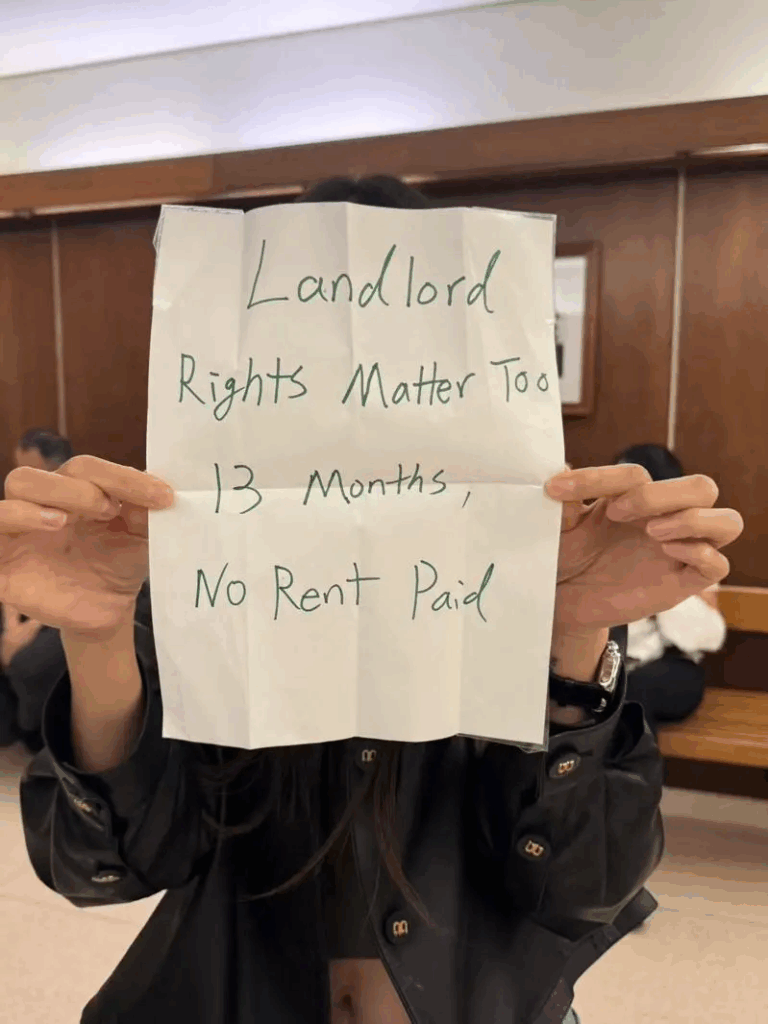 Landlord
Rights Matter Too
13 Months,
No Rent Paid